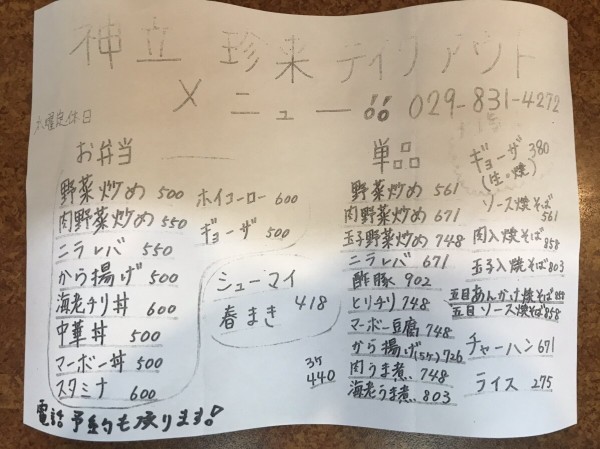 神立 珍来 テイクアウト
メニュー!! 029-831-4272
火曜定休日
お弁当
野菜炒め 500
肉野菜炒め 550
ニラレバ 550
から揚げ 500
海老チリ丼 600
中華丼 500
マーボー丼 500
スタミナ 600
ホイコーロー 600
ギョーザ 500
シューマイ
春まき 418
3ヶ
440
単品
野菜炒め 561
肉野菜炒め 671
玉子野菜炒め 748
ニラレバ 671
酢豚 902
とりチリ 748
マーボー豆腐 748
から揚げ(5ヶ) 726
肉うま煮 748
海老うま煮 803
ギョーザ 380
(生・焼)
ソース焼そば
561
肉入焼そば 858
玉子入焼そば 803
五目あんかけ焼そば 858
五目ソース焼そば 858
チャーハン 671
ライス 275
電話予約も承ります!